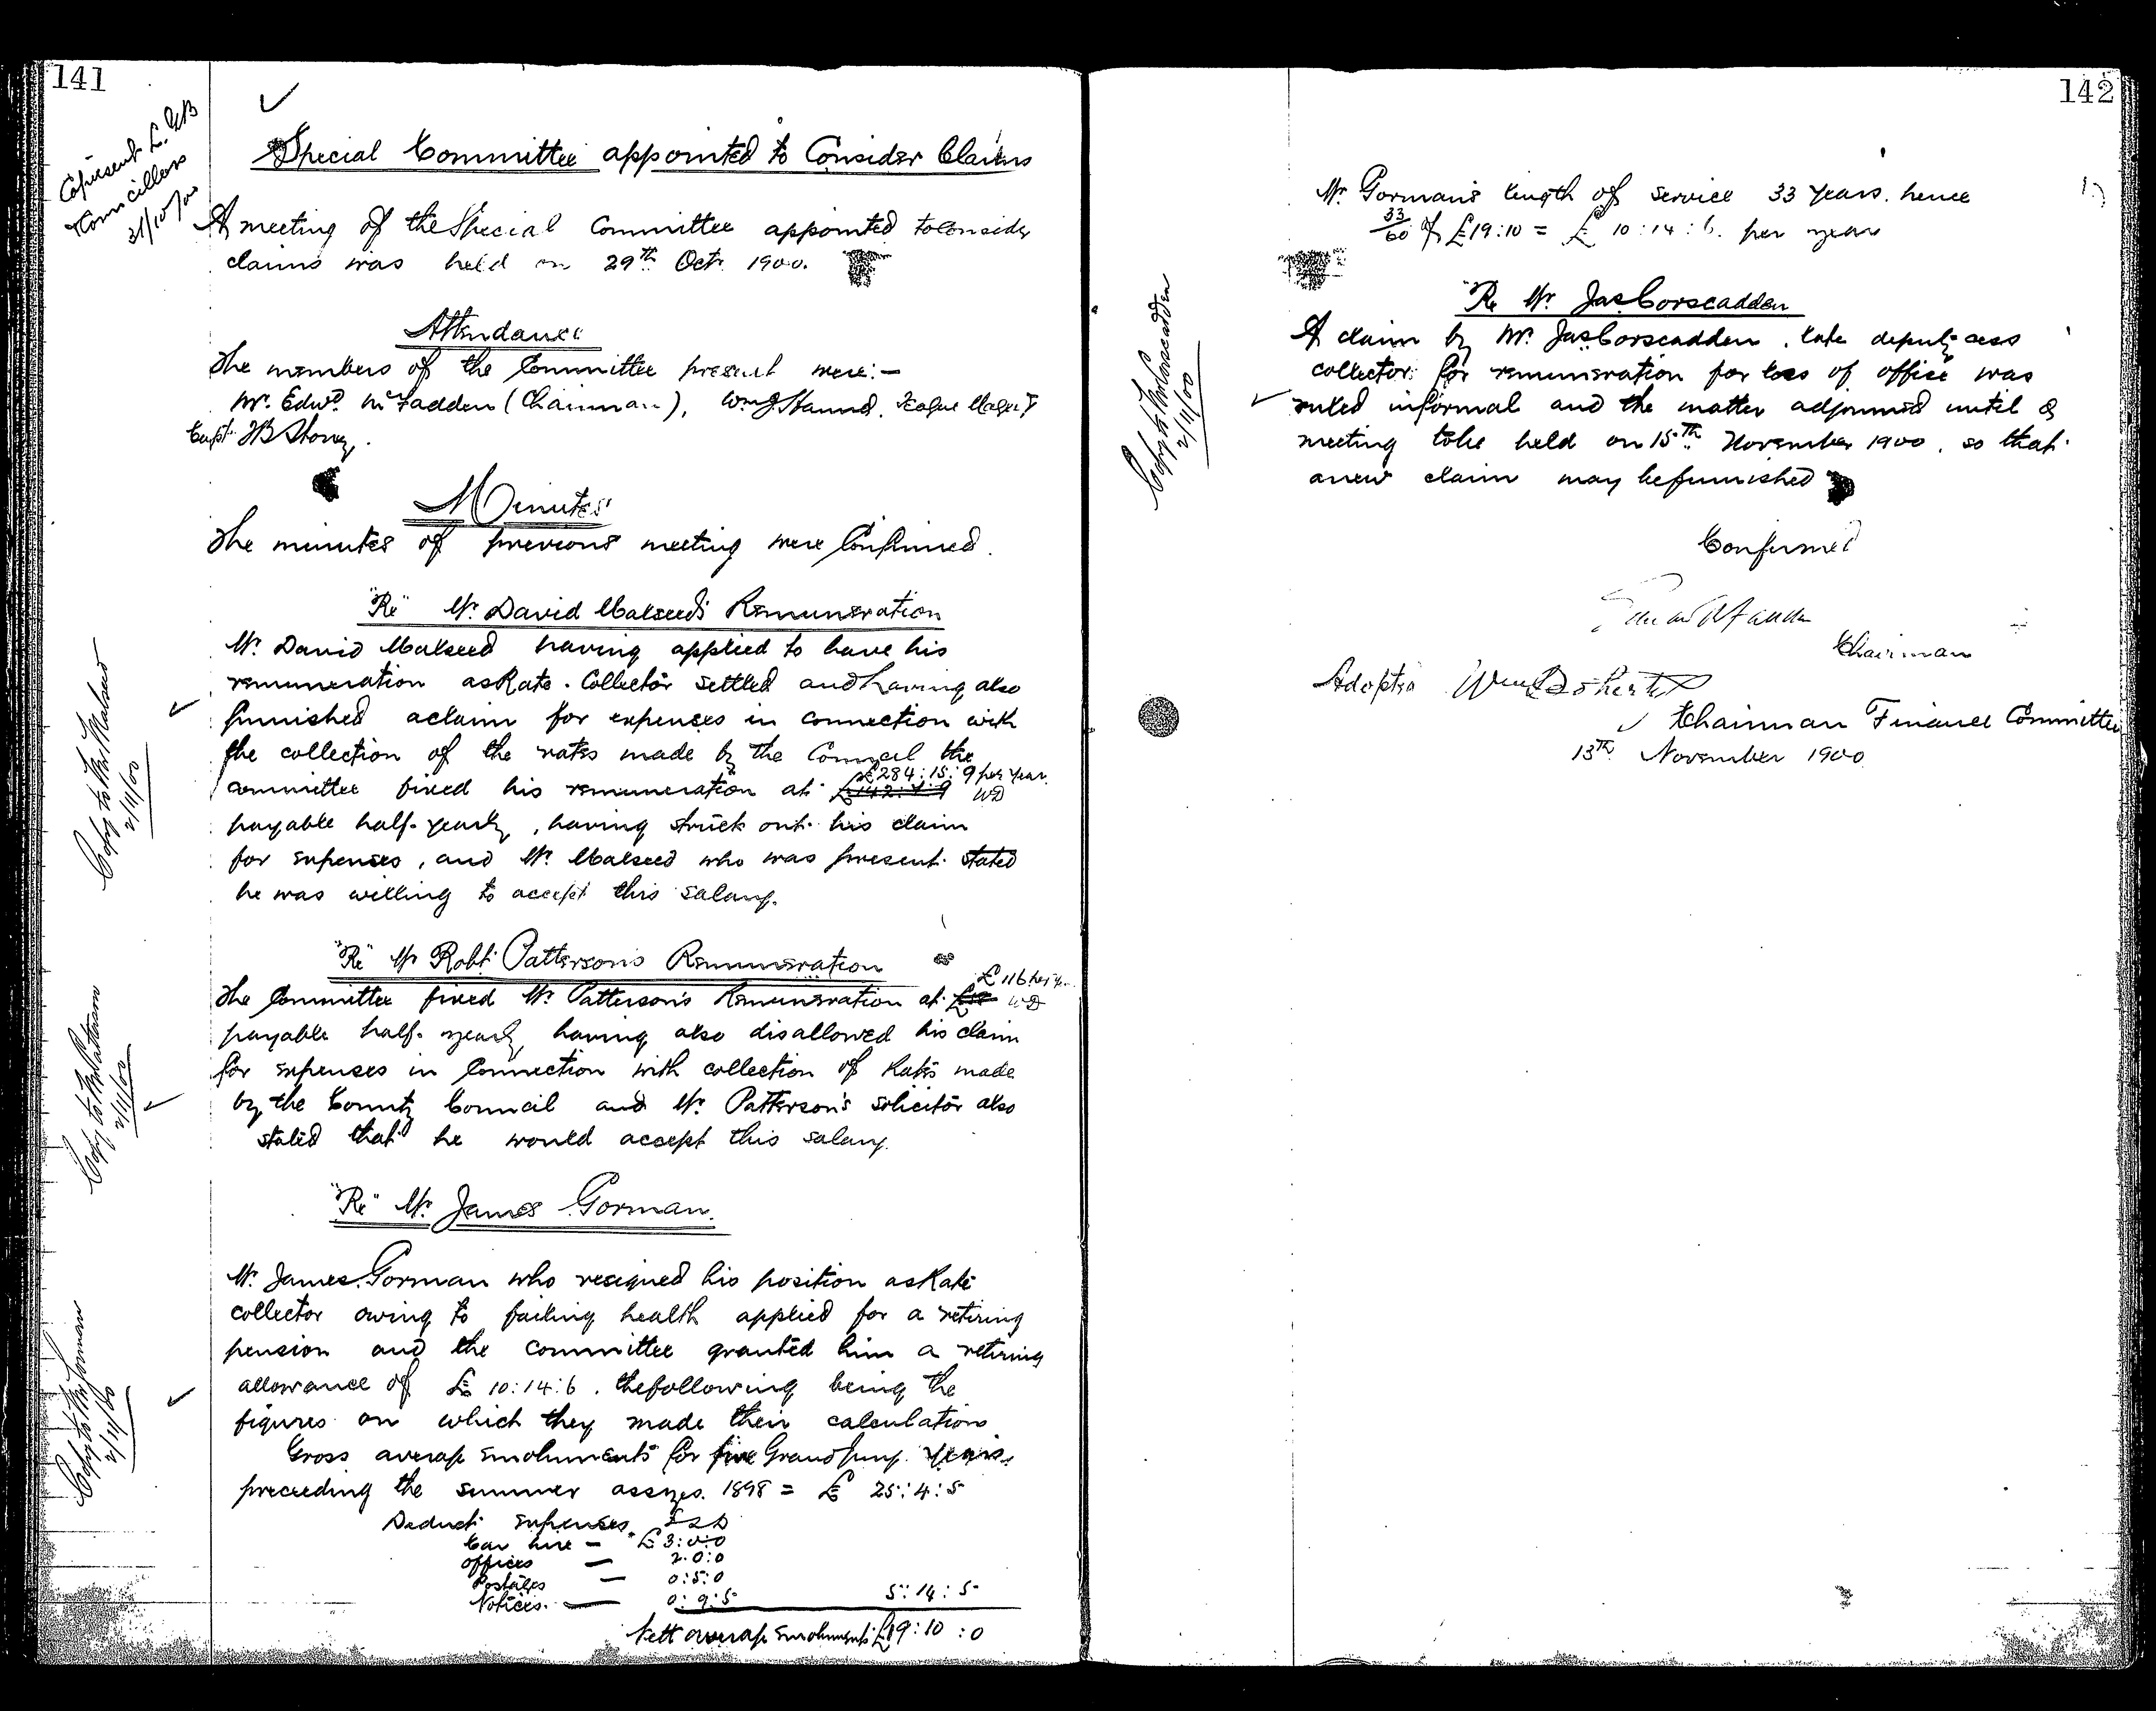 141
Special Committee appointed to Consider Claims
A meeting of the Special Committee appointed to Consider
claims was held on 29th Octr 1900.
Attendance
The members of the Committee present were:-
Mr. Edwd. McFadden (Chairman), Wm J Hannd,
Capt. Storey.
Minutes
The minutes of previous meeting were Confirmed.
"Re" Mr. David Malseed's Remuneration
Mr. David Malseed having applied to have his
remuneration as Rate-Collector settled and having also
furnished a claim for expenses in connection with
the collection of the rates made by the Council the
£284:15:9 per year.
committee fixed his remuneration at £142:7:9 WD
payable half-yearly, having struck out his claim
for expenses, and Mr. Malseed who was present stated
he was willing to accept this salary.
"Re" Mr Robt Patterson's Remuneration
£116 per yr.
The Committee fixed Mr. Patterson's Remuneration at WD
payable half-yearly, having also disallowed his claim
for expenses in Connection with collection of Rates made
by the County Council and Mr. Patterson's solicitor also
stated that he would accept this salary.
"Re" Mr. James Gorman.
Mr. James Gorman who resigned his position as Rate
collector owing to failing health applied for a retiring
pension and the committee granted him a retiring
allowance of £10:14:6. the following being the
figures on which they made their calculations
Gross average emoluments for five Grand Jury Years
preceeding the summer assizes. 1898 = £ 25:4:5
Deduct expenses. £ S D
Car hire - £3:0:0
offices - 2.0:0
Postages - 0:5:0
Notices. - 0:9:5 5:14:5
Nett average emoluments £19:10:0
& Councillors
31/10/00
Copy to Mr Malseed
2/11/00
Copy to Mr Patterson
2/11/00
Copy to Mr Gorman
2/11/00
142
Mr. Gorman's length of service 33 years. hence
33/60 of £19:10 = £ 10:14:6. per year
"Re Mr. Jas Corscadden
A claim by Mr. Jas Corscadden, late deputy cess
collector for remuneration for loss of office was
ruled informal and the matter adjourned until a
meeting to be held on 15th November 1900, so that
a new claim may be furnished
Confirmed
Chairman
Adopted Wm Doherty
Chairman Finance Committee
13th November 1900
Copy to Mr Corscadden
2/11/00